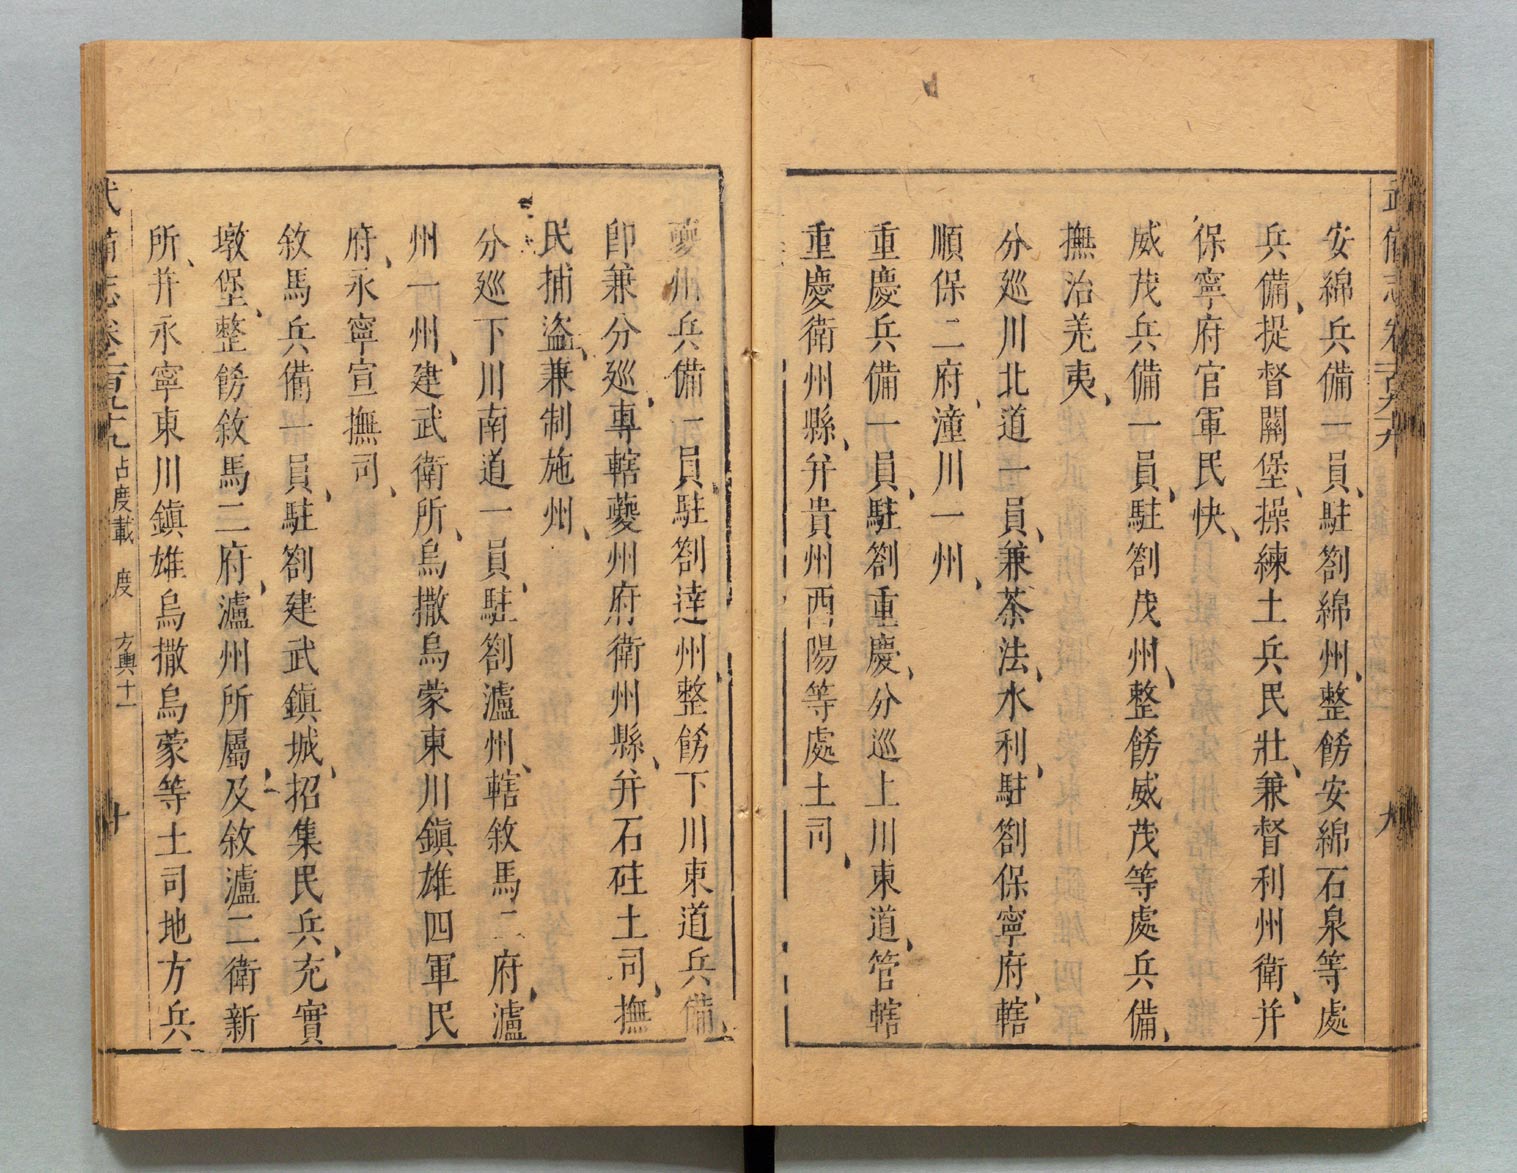 安綿兵備一員、駐劄綿州、整飭安綿石泉等處
兵備、提督關堡、操練土兵民壯、兼督利州衛、并
保寧府官軍民快、
威茂兵備一員、駐劄茂州、整飭威茂等處兵備、
撫治羌夷、
分巡川北道一員、兼茶法、水利、駐劄保寧府、轄
順保二府、潼川一州、
重慶兵備一員、駐劄重慶、分巡上川東道、管轄
重慶衛州縣、并貴州酉陽等處土司、
夔州兵備一員、駐劄達州、整飭下川東道兵備、
卽兼分巡、專轄夔州府衛州縣、并石砫土司、撫
民捕盜、兼制施州、
分巡下川南道一員、駐劄瀘州、轄敘馬二府、瀘
州一州、建武衛所、烏撒烏蒙東川鎮雄四軍民
府、永寧宣撫司、
敘馬兵備一員、駐劄建武鎮城、招集民兵、充實
墩堡、整飭敘馬二府、瀘州所屬、及敘瀘二衛新
所、并永寧東川鎮雄烏撒烏蒙等土司地方兵
武備志卷二百九十九 占度載 度 方輿十一 十